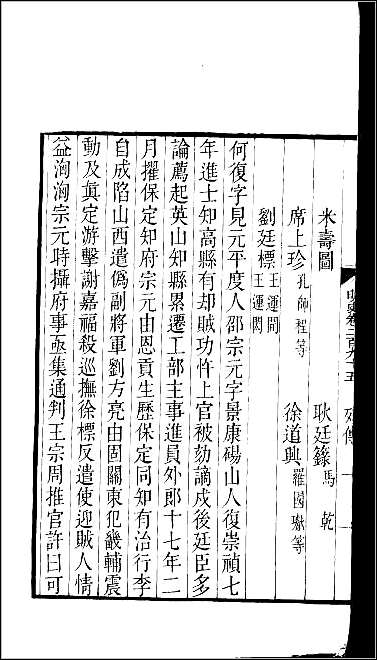 米壽圖　耿廷籙馬乾
席上珍孔師程等　徐道興羅國瓛等
劉廷標王運開王運閎
何復字見元平度人邵宗元字景康碭山人復崇禎七
年進士知高縣有却賊功忤上官被劾謫戍後廷臣多
論薦起英山知縣累遷工部主事進員外郎十七年二
月擢保定知府宗元由恩貢生歷保定同知有治行李
自成陷山西遣偽副將軍劉方亮由固關東犯畿輔震
動及眞定游擊謝嘉福殺巡撫徐標反遣使迎賊人情
益洶洶宗元時攝府事亟集通判王宗周推官許曰可